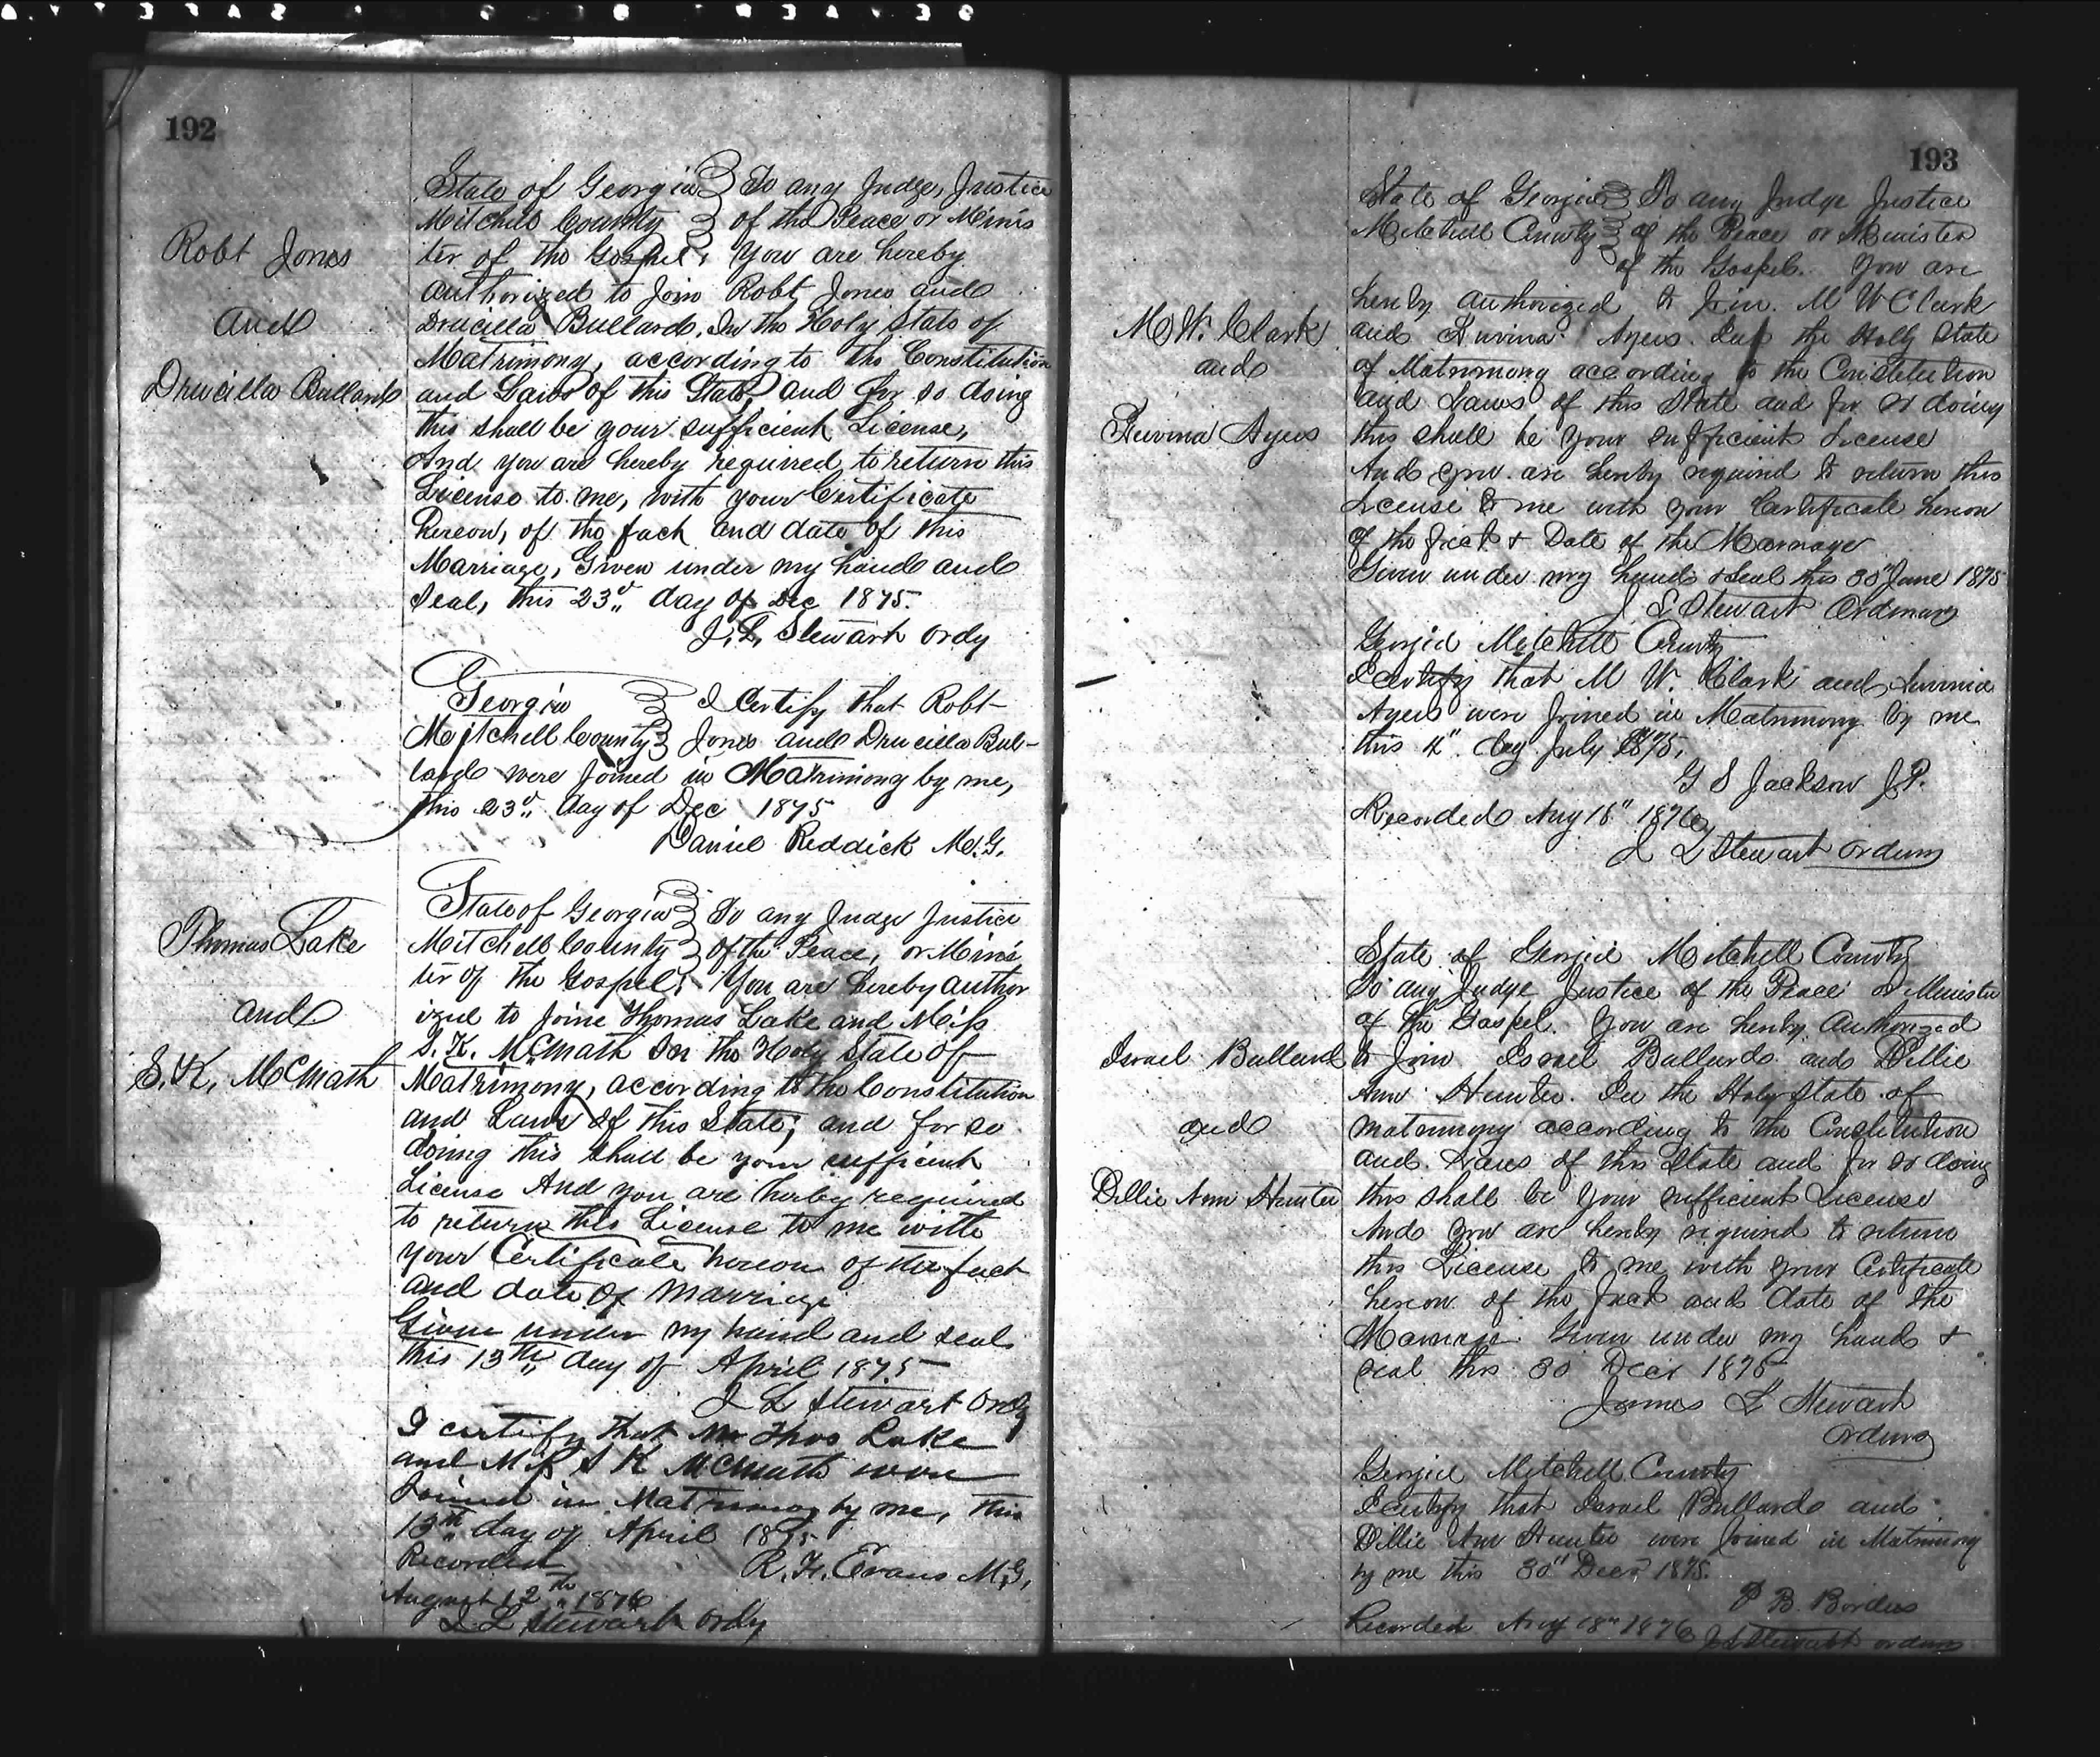 192
Robt Jones
and
Drucilla Bullard
State of Georgia To any Judge, Justice
Mitchell County of the Peace or Minis
ter of the Gospel, You are hereby
authorized to Join Robt Jones and
Drucilla Bullard, In the Holy State of
Matrimony, according to the Constitution
and Laws of this State, and for so doing
this shall be your sufficient License,
And you are hereby required to return this
License to me, with your Certificate
hereon, of the fact and date of this
Marriage, Given under my hand and
seal, this 23d day of Dec 1875.
J. L. Stewart Ordy
Georgia I Certify that Robt
Mitchell County Jones and Drucilla Bul-
lard were Joined in Matrimony by me,
this 23d day of Dec 1875
Daniel Reddick M.G.
Thomas Lake
and
S. K. McMath
State of Georgia To any Judge Justice
Mitchell County of the Peace, or Minis
ter of the Gospel, You are hereby author
ized to Joine Thomas Lake and Miss
S. K. McMath In the Holy State of
Matrimony, according to the Constitution
and Laws of this State, and for so
doing this shall be your sufficient
License And you are herby required
to return this License to me with
your Certificate hereon of the fact
and date of Marriage
Given under my hand and seal
this 13th day of April 1875
J L Stewart Ordy
I certify that Mr Thos Lake
and Miss S K McMath were
Joined in Matrimony by me, this
13th day of April 1875
Recorded R. H. Evans M.G.
August 12th 1876
J L Stewart Ordy
193
M. W. Clark
and
Ayers
State of Georgia To any Judge Justice
Mitchell County of the Peace or Minister
of the Gospel. You are
hereby authorized to Join. M W Clark
and Ayers. In the Holy State
of Matrimony according to the Constitution
and Laws of this State and for so doing
this shall be your sufficient License
And you are hereby required to return this
License to me with your Certificate hereon
of the fact & Date of the Marriage
Given under my hand & Seal this 30" June 1875
J L Stewart Ordinary
Georgia Mitchell County
I Certify that M W. Clark and
Ayers were Joined in Matrimony by me
this 4" day July 1875.
G S Jackson J.P.
Recorded Aug 18" 1876
J L Stewart Ordinary
Israel Bullard
and
Dillie Ann Hunter
State of Georgia Mitchell County
To any Judge Justice of the Peace or Minister
of the Gospel. You are hereby Authorized
to Join Israel Bullard and Dillie
Ann Hunter. In the Holy State of
matrimony according to the Constitution
and Laws of this State and for so doing
this shall be your sufficient License
And you are hereby required to return
this License to me with your Certificate
hereon of the fact and date of the
Marriage. Given under my hand &
seal this 30 Decr 1875
James L Stewart
Ordinary
Georgia Mitchell County
I Certify that Israel Bullard and
Dillie Ann Hunter were Joined in Matrimony
by me this 30" Decr 1875.
P B. Borders
Recorded Aug 18" 1876 J L Stewart Ordinary